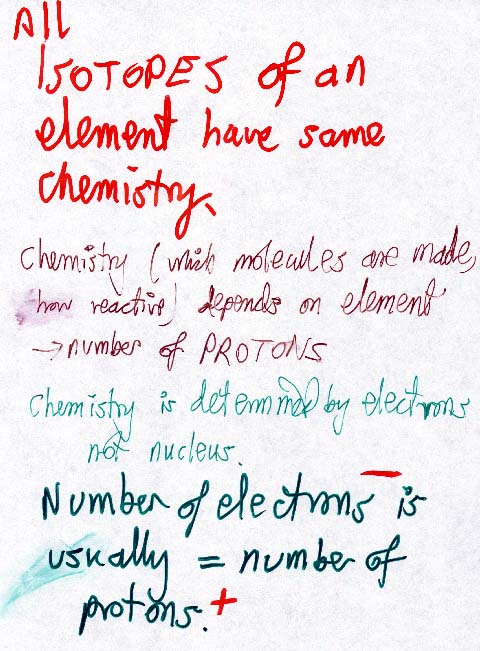 All
ISOTOPES of an
element have same
chemistry.
Chemistry (which molecules are made,
how reactive) depends on element
→ number of PROTONS
Chemistry is determined by electrons
not nucleus.
Number of electrons – is
usually = number of
protons. +